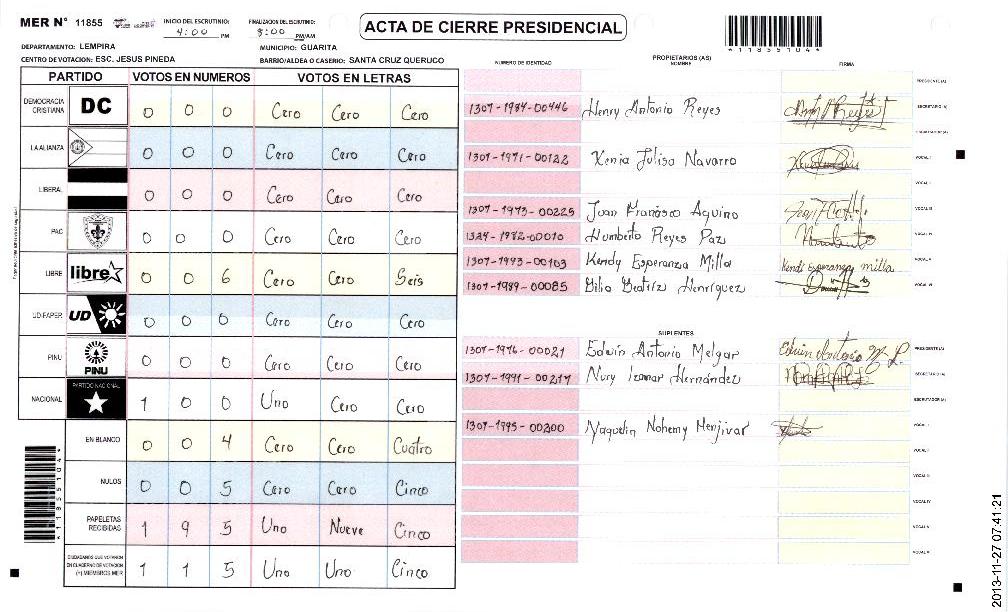 MER N° 11855
INICIO DEL ESCRUTINIO: 4:00 PM
FINALIZACION DEL ESCRUTINIO: 8:00 PM/AM
ACTA DE CIERRE PRESIDENCIAL
4118551044
DEPARTAMENTO: LEMPIRA
MUNICIPIO: GUARITA
CENTRO DE VOTACION: ESC. JESUS PINEDA
BARRIO/ALDEA O CASERIO: SANTA CRUZ QUERUCO
PARTIDO VOTOS EN NUMEROS VOTOS EN LETRAS
DEMOCRACIA CRISTIANA DC 0 0 0 Cero Cero Cero
LA ALIANZA 0 0 0 Cero Cero Cero
LIBERAL 0 0 0 Cero Cero Cero
PAC 0 0 0 Cero Cero Cero
LIBRE libre 0 0 6 Cero Cero Seis
UD-FAPER UD 0 0 0 Cero Cero Cero
PINU PINU 0 0 0 Cero Cero Cero
NACIONAL PARTIDO NACIONAL 1 0 0 Uno Cero Cero
EN BLANCO 0 0 4 Cero Cero Cuatro
NULOS 0 0 5 Cero Cero Cinco
PAPELETAS RECIBIDAS 1 9 5 Uno Nueve Cinco
CIUDADANOS QUE VOTARON EN CUADERNO DE VOTACION (+) MIEMBROS MER 1 1 5 Uno Uno Cinco
NUMERO DE IDENTIDAD PROPIETARIOS (AS) NOMBRE FIRMA
PRESIDENTE (A)
1307-1984-00446 Henry Antonio Reyes SECRETARIO (A)
ESCRUTADOR (A)
1307-1971-00122 Xenia Julisa Navarro VOCAL I
VOCAL II
1307-1973-00225 Juan Francisco Aquino VOCAL III
1324-1982-00010 Humberto Reyes Paz VOCAL IV
1307-1993-00103 Kendy Esperanza Milla Kendi Esperanza milla VOCAL V
1307-1989-00085 Dilia Beatriz Henríquez VOCAL VI
SUPLENTES
1307-1976-00021 Edwin Antonio Melgar PRESIDENTE (A)
1307-1991-00217 Nury Izamar Hernández SECRETARIO (A)
ESCRUTADOR (A)
1307-1995-00300 Yaquelin Nohemy Menjivar VOCAL I
VOCAL II
VOCAL III
VOCAL IV
VOCAL V
VOCAL VI
2013-11-27 07:41:21